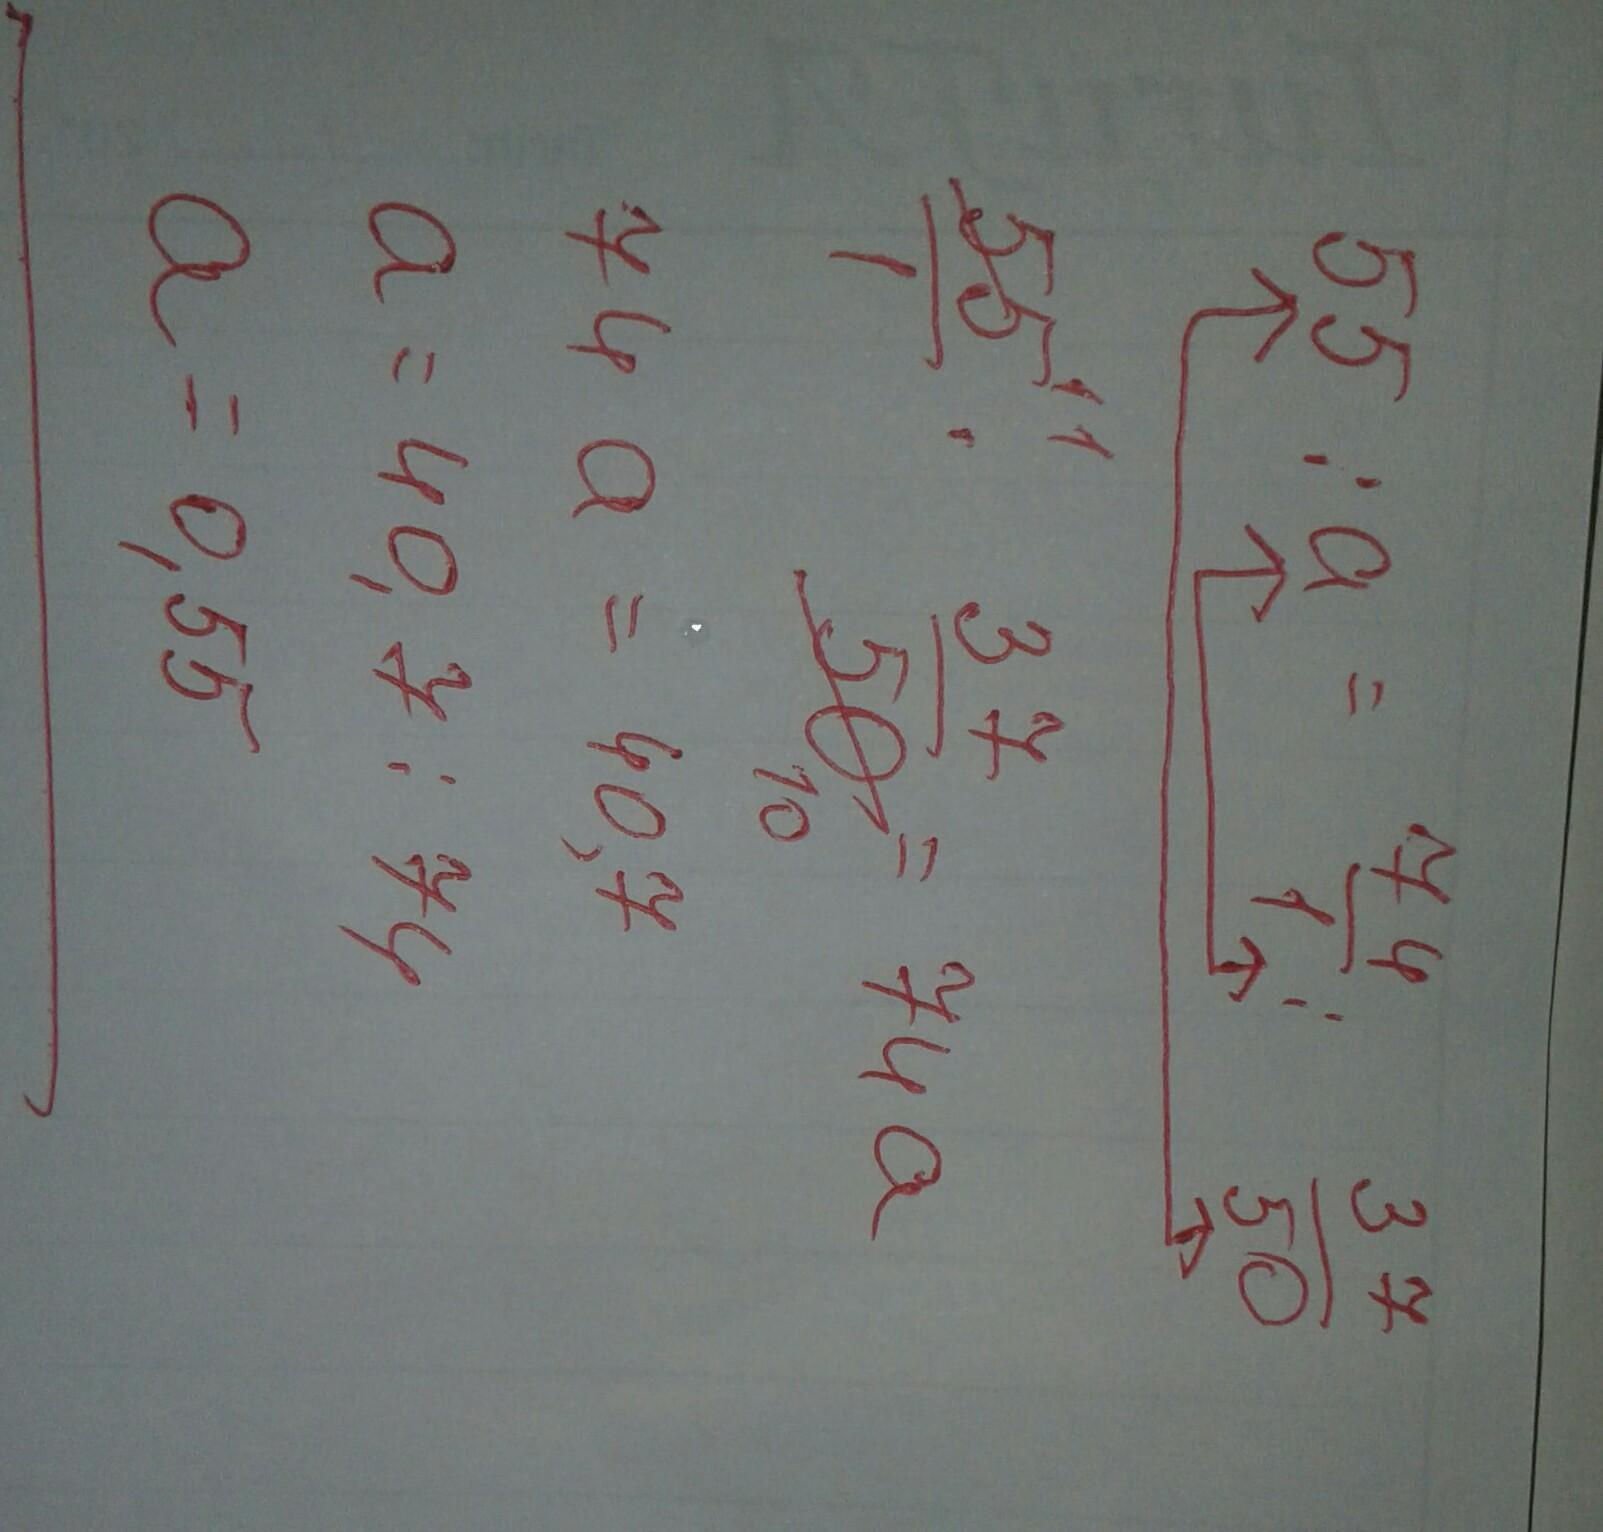 55 : a = 74/1 : 37/50
55/1 11 . 37/50 10 = 74a
74a = 40,7
a = 40,7 : 74
a = 0,55